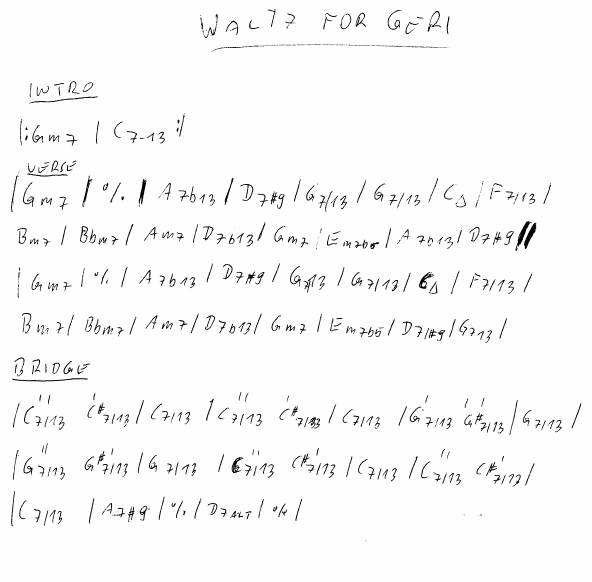 WALTZ FOR GERI
INTRO
|: Gm7 | C7-13 :|
VERSE
| Gm7 | % | A7b13 | D7#9 | G7/13 | G7/13 | C△ | F7/13 |
Bm7 | Bbm7 | Am7 | D7b13 | Gm7 | Em7b5 | A7b13 | D7#9 ||
| Gm7 | % | A7b13 | D7#9 | G7/13 | G7/13 | C△ | F7/13 |
Bm7 | Bbm7 | Am7 | D7b13 | Gm7 | Em7b5 | D7/#9 | G713 |
BRIDGE
| C''7/13 C#'7/13 | C7/13 | C''7/13 C#'7/13 | C7/13 | G'7/13 G#'7/13 | G7/13 |
| G''7/13 G#'7/13 | G7/13 | C''7/13 C#'7/13 | C7/13 | C''7/13 C#'7/13 |
| C7/13 | A7#9 | % | D7ALT | % |